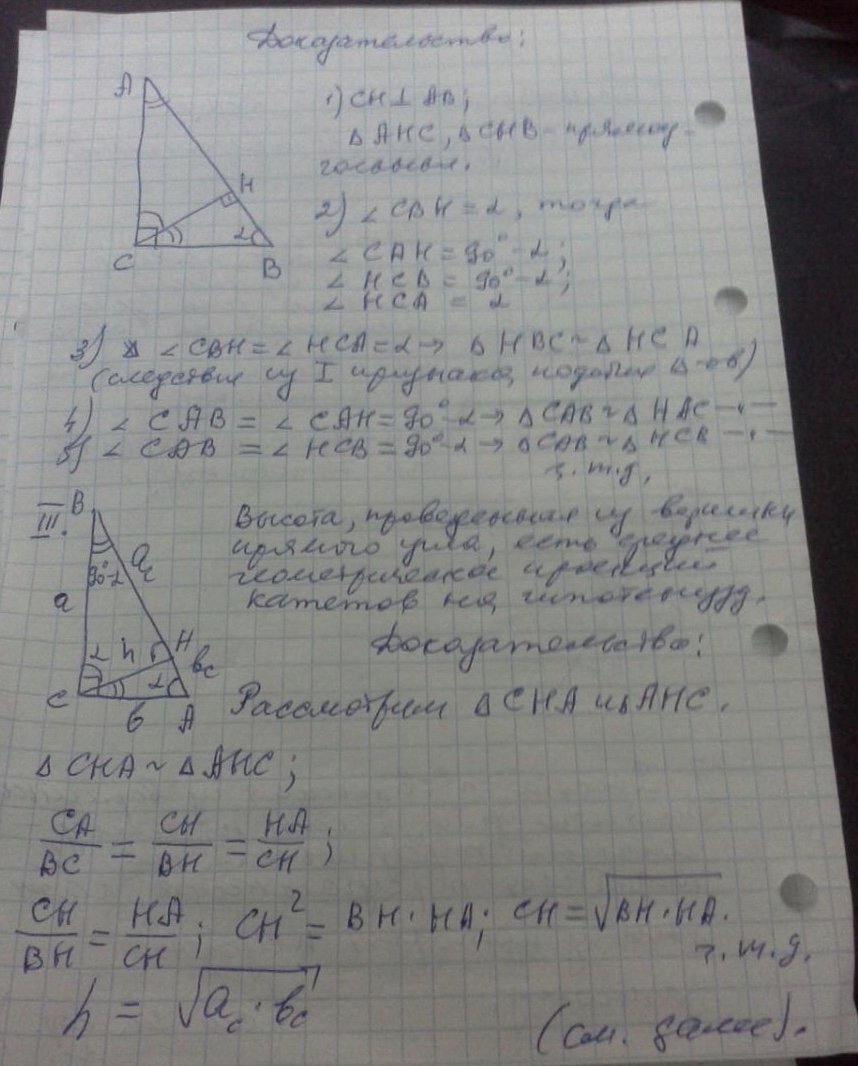 Доказательство:
A
H
C
α
B
1) CH⊥AB;
Δ AHC, Δ CHB - прямоу-
гольные.
2) ∠ CBH = α, тогда
∠ CAH = 90° - α;
∠ HCB = 90° - α;
∠ HCA = α
3) ∠ CBH = ∠ HCA = α → Δ HBC ~ Δ HCA
(следствие из I признака подобия Δ-ов)
4) ∠ CAB = ∠ CAH = 90° - α → Δ CAB ~ Δ HAC -"-
5) ∠ CAB = ∠ HCB = 90° - α → Δ CAB ~ Δ HCB -"-
ч.т.д.
III.
B
90°-α
a
a_c
α
h
H
b_c
C
α
b
A
Высота, проведенная из вершины
прямого угла, есть среднее
геометрическое проекций
катетов на гипотенузу.
Доказательство:
Рассмотрим Δ CHA и Δ AHC.
Δ CHA ~ Δ AHC;
CA/BC = CH/BH = HA/CH;
CH/BH = HA/CH; CH² = BH · HA; CH = √BH · HA.
ч.т.д.
h = √a_c · b_c
(см. далее).